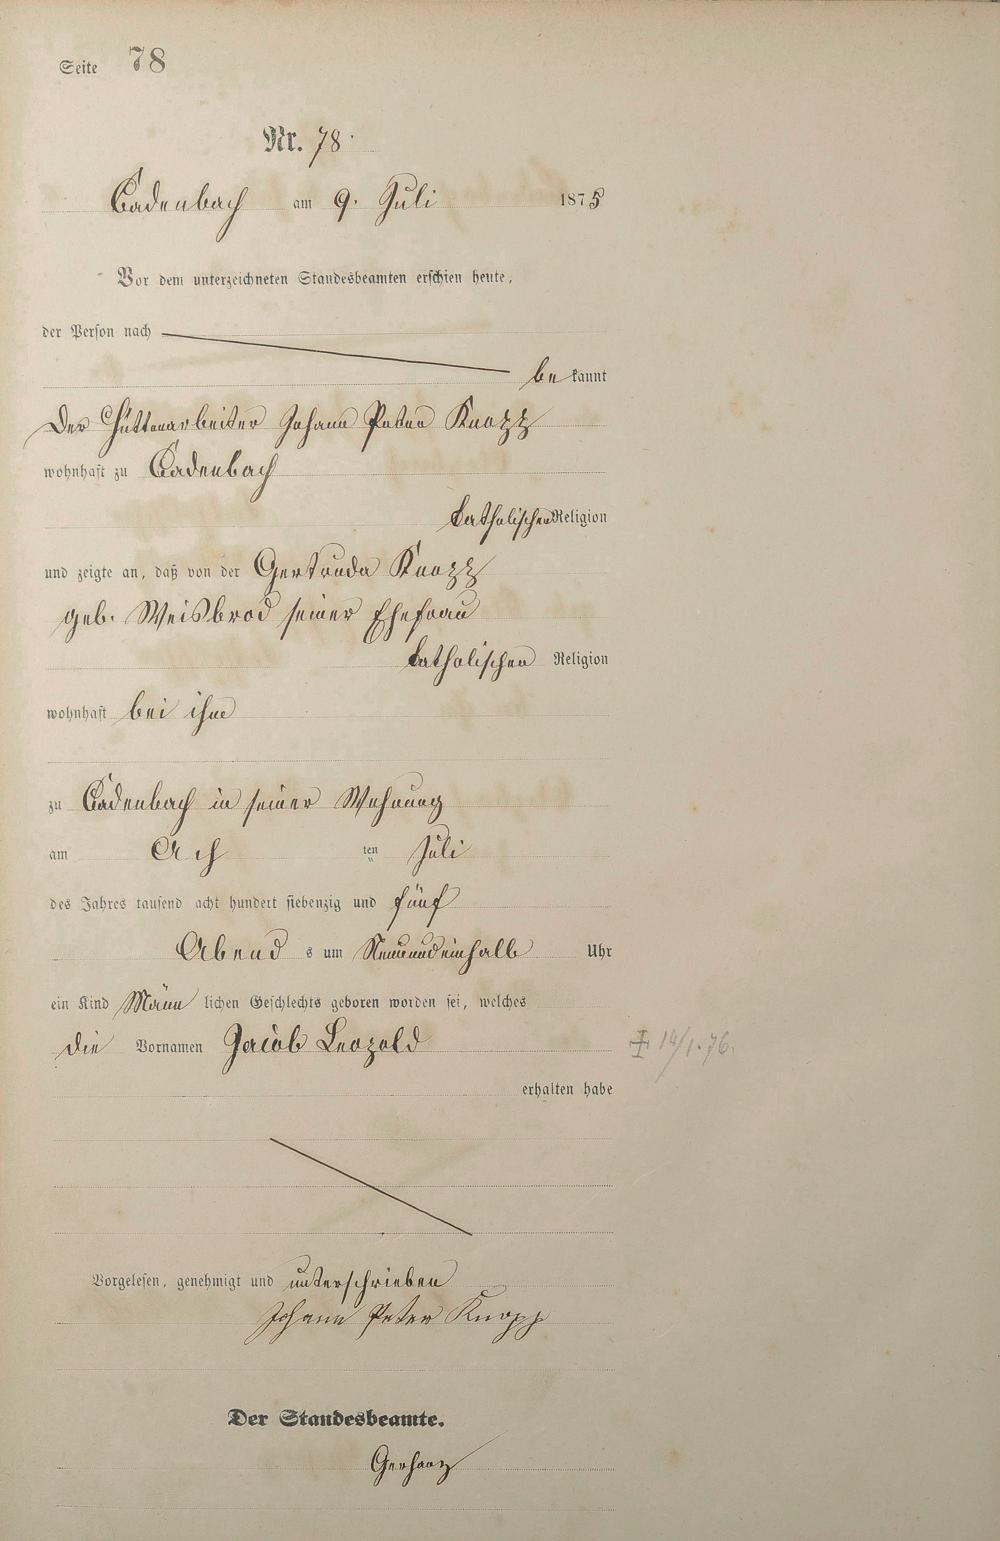 Seite 78
Nr. 78.
Cadenbach am 9. Juli 1875
Vor dem unterzeichneten Standesbeamten erschien heute,
der Person nach
be kannt
der Hüttenarbeiter Johann Peter Knopp
wohnhaft zu Cadenbach
katholischen Religion
und zeigte an, daß von der Gertruda Knopp
geb. Weisbrod seiner Ehefrau
katholischen Religion
wohnhaft bei ihm
zu Cadenbach in seiner Wohnung
am Ach ten Juli
des Jahres tausend acht hundert siebenzig und fünf
Abend s um Neunundeinhalb Uhr
ein Kind Männ lichen Geschlechts geboren worden sei, welches
die Vornamen Jacob Leopold
14/1.76.
erhalten habe
Vorgelesen, genehmigt und unterschrieben
Johann Peter Knopp
Der Standesbeamte.
Gerharz